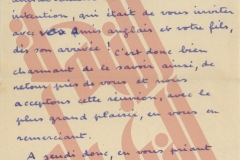 intention, qui était de vous inviter
avec vos amis anglais et votre fils,
dès son arrivée! c'est donc bien
charmant de le savoir ainsi, de
retour près de vous et nous
acceptons cette réunion, avec le
plus grand plaisir, en vous en
remerciant.
A jeudi donc, en vous priant